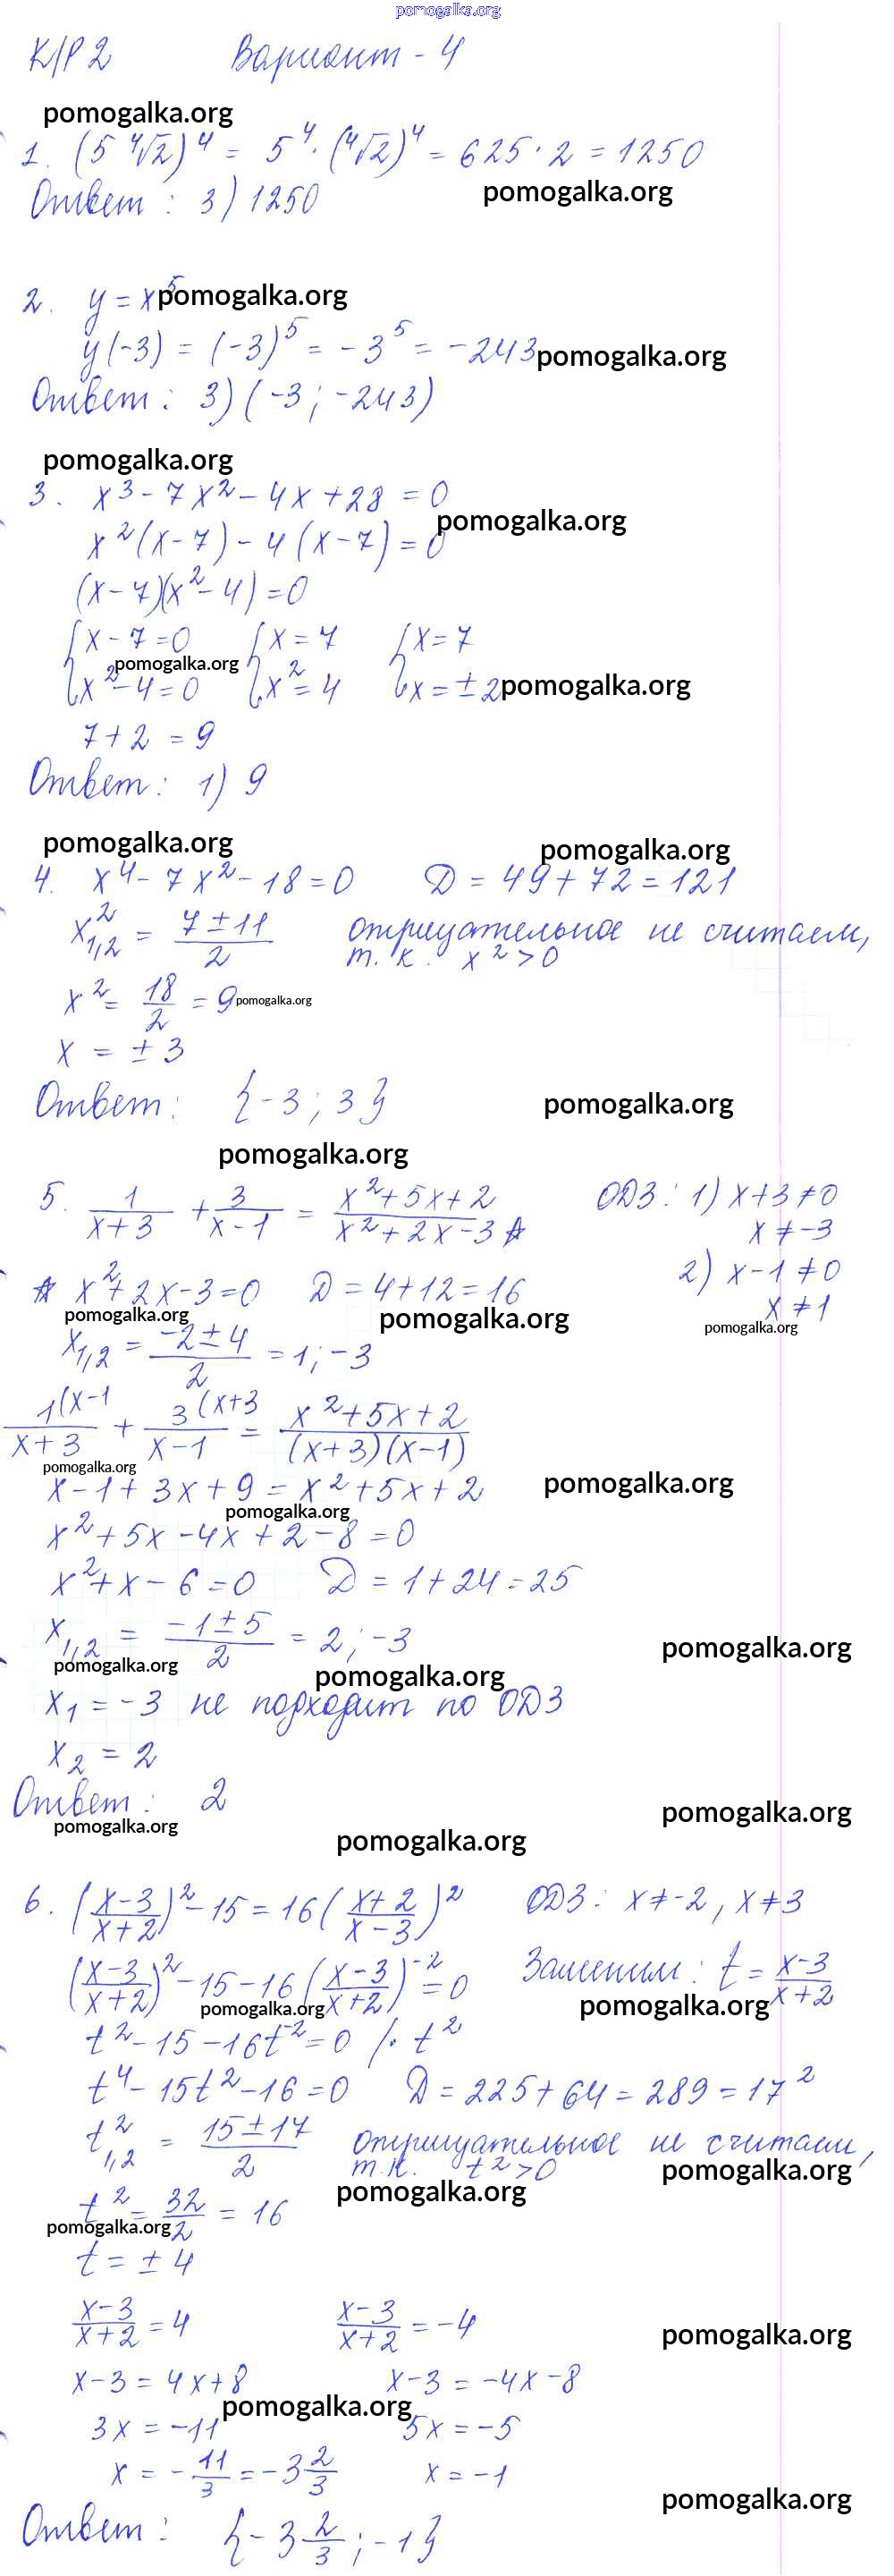 pomogalka.org
К/Р 2 Вариант - 4
pomogalka.org
1. (5 ⁴√2)⁴ = 5⁴ · (⁴√2)⁴ = 625 · 2 = 1250
pomogalka.org
Ответ: 3) 1250
2. y = x⁵ pomogalka.org
y(-3) = (-3)⁵ = -3⁵ = -243 pomogalka.org
Ответ: 3) (-3; -243)
pomogalka.org
3. x³ - 7x² - 4x + 28 = 0
pomogalka.org
x²(x-7) - 4(x-7) = 0
(x-7)(x²-4) = 0
{x-7=0 {x=7 {x=7
pomogalka.org
{x²-4=0 {x²=4 {x=±2 pomogalka.org
7+2 = 9
Ответ: 1) 9
pomogalka.org pomogalka.org
4. x⁴ - 7x² - 18 = 0 D = 49+72 = 121
x²₁,₂ = (7±11)/2 отрицательное не считаем,
т.к. x²>0
x² = 18/2 = 9 pomogalka.org
x = ±3
Ответ: {-3; 3} pomogalka.org
pomogalka.org
5. 1/(x+3) + 3/(x-1) = (x²+5x+2)/(x²+2x-3)☆ ОДЗ: 1) x+3≠0
x≠-3
☆ x²+2x-3=0 D = 4+12=16 2) x-1≠0
x≠1
pomogalka.org pomogalka.org pomogalka.org
x₁,₂ = (-2±4)/2 = 1; -3
1(x-1/(x+3) + 3(x+3/(x-1) = (x²+5x+2)/((x+3)(x-1))
pomogalka.org pomogalka.org
x-1+3x+9 = x²+5x+2
pomogalka.org
x²+5x-4x+2-8=0
x²+x-6=0 D = 1+24=25
x₁,₂ = (-1±5)/2 = 2; -3
pomogalka.org
pomogalka.org pomogalka.org
x₁ = -3 не подходит по ОДЗ
x₂ = 2
Ответ: 2
pomogalka.org
pomogalka.org pomogalka.org
6. ((x-3)/(x+2))² - 15 = 16((x+2)/(x-3))² ОДЗ: x≠-2, x≠3
((x-3)/(x+2))² - 15 - 16((x-3)/(x+2))⁻² = 0 Заменим: t = (x-3)/(x+2)
pomogalka.org pomogalka.org
t² - 15 - 16t⁻² = 0 /· t²
t⁴ - 15t² - 16 = 0 D = 225+64 = 289 = 17²
t²₁,₂ = (15±17)/2 отрицательное не считаем,
т.к. t²>0 pomogalka.org
pomogalka.org
t² = 32/2 = 16
pomogalka.org
t = ±4
(x-3)/(x+2) = 4 (x-3)/(x+2) = -4 pomogalka.org
x-3 = 4x+8 x-3 = -4x-8
pomogalka.org
3x = -11 5x = -5
x = -11/3 = -3 2/3 x = -1
pomogalka.org
Ответ: {-3 2/3; -1}